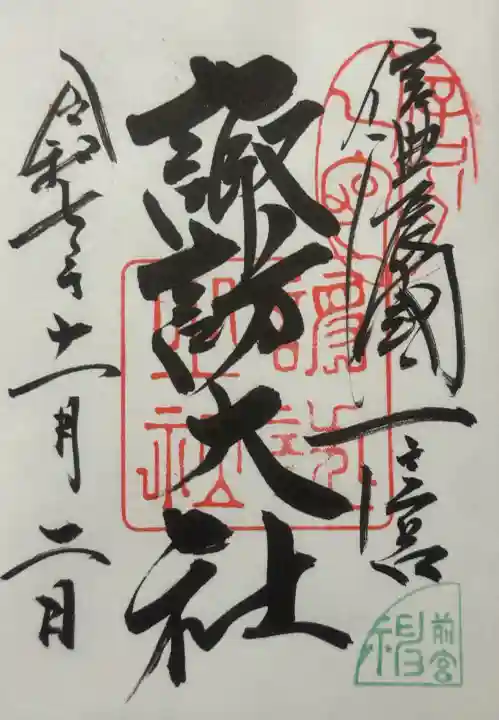 信濃國一之宮
諏訪大社
令和七年十一月二日
前宮